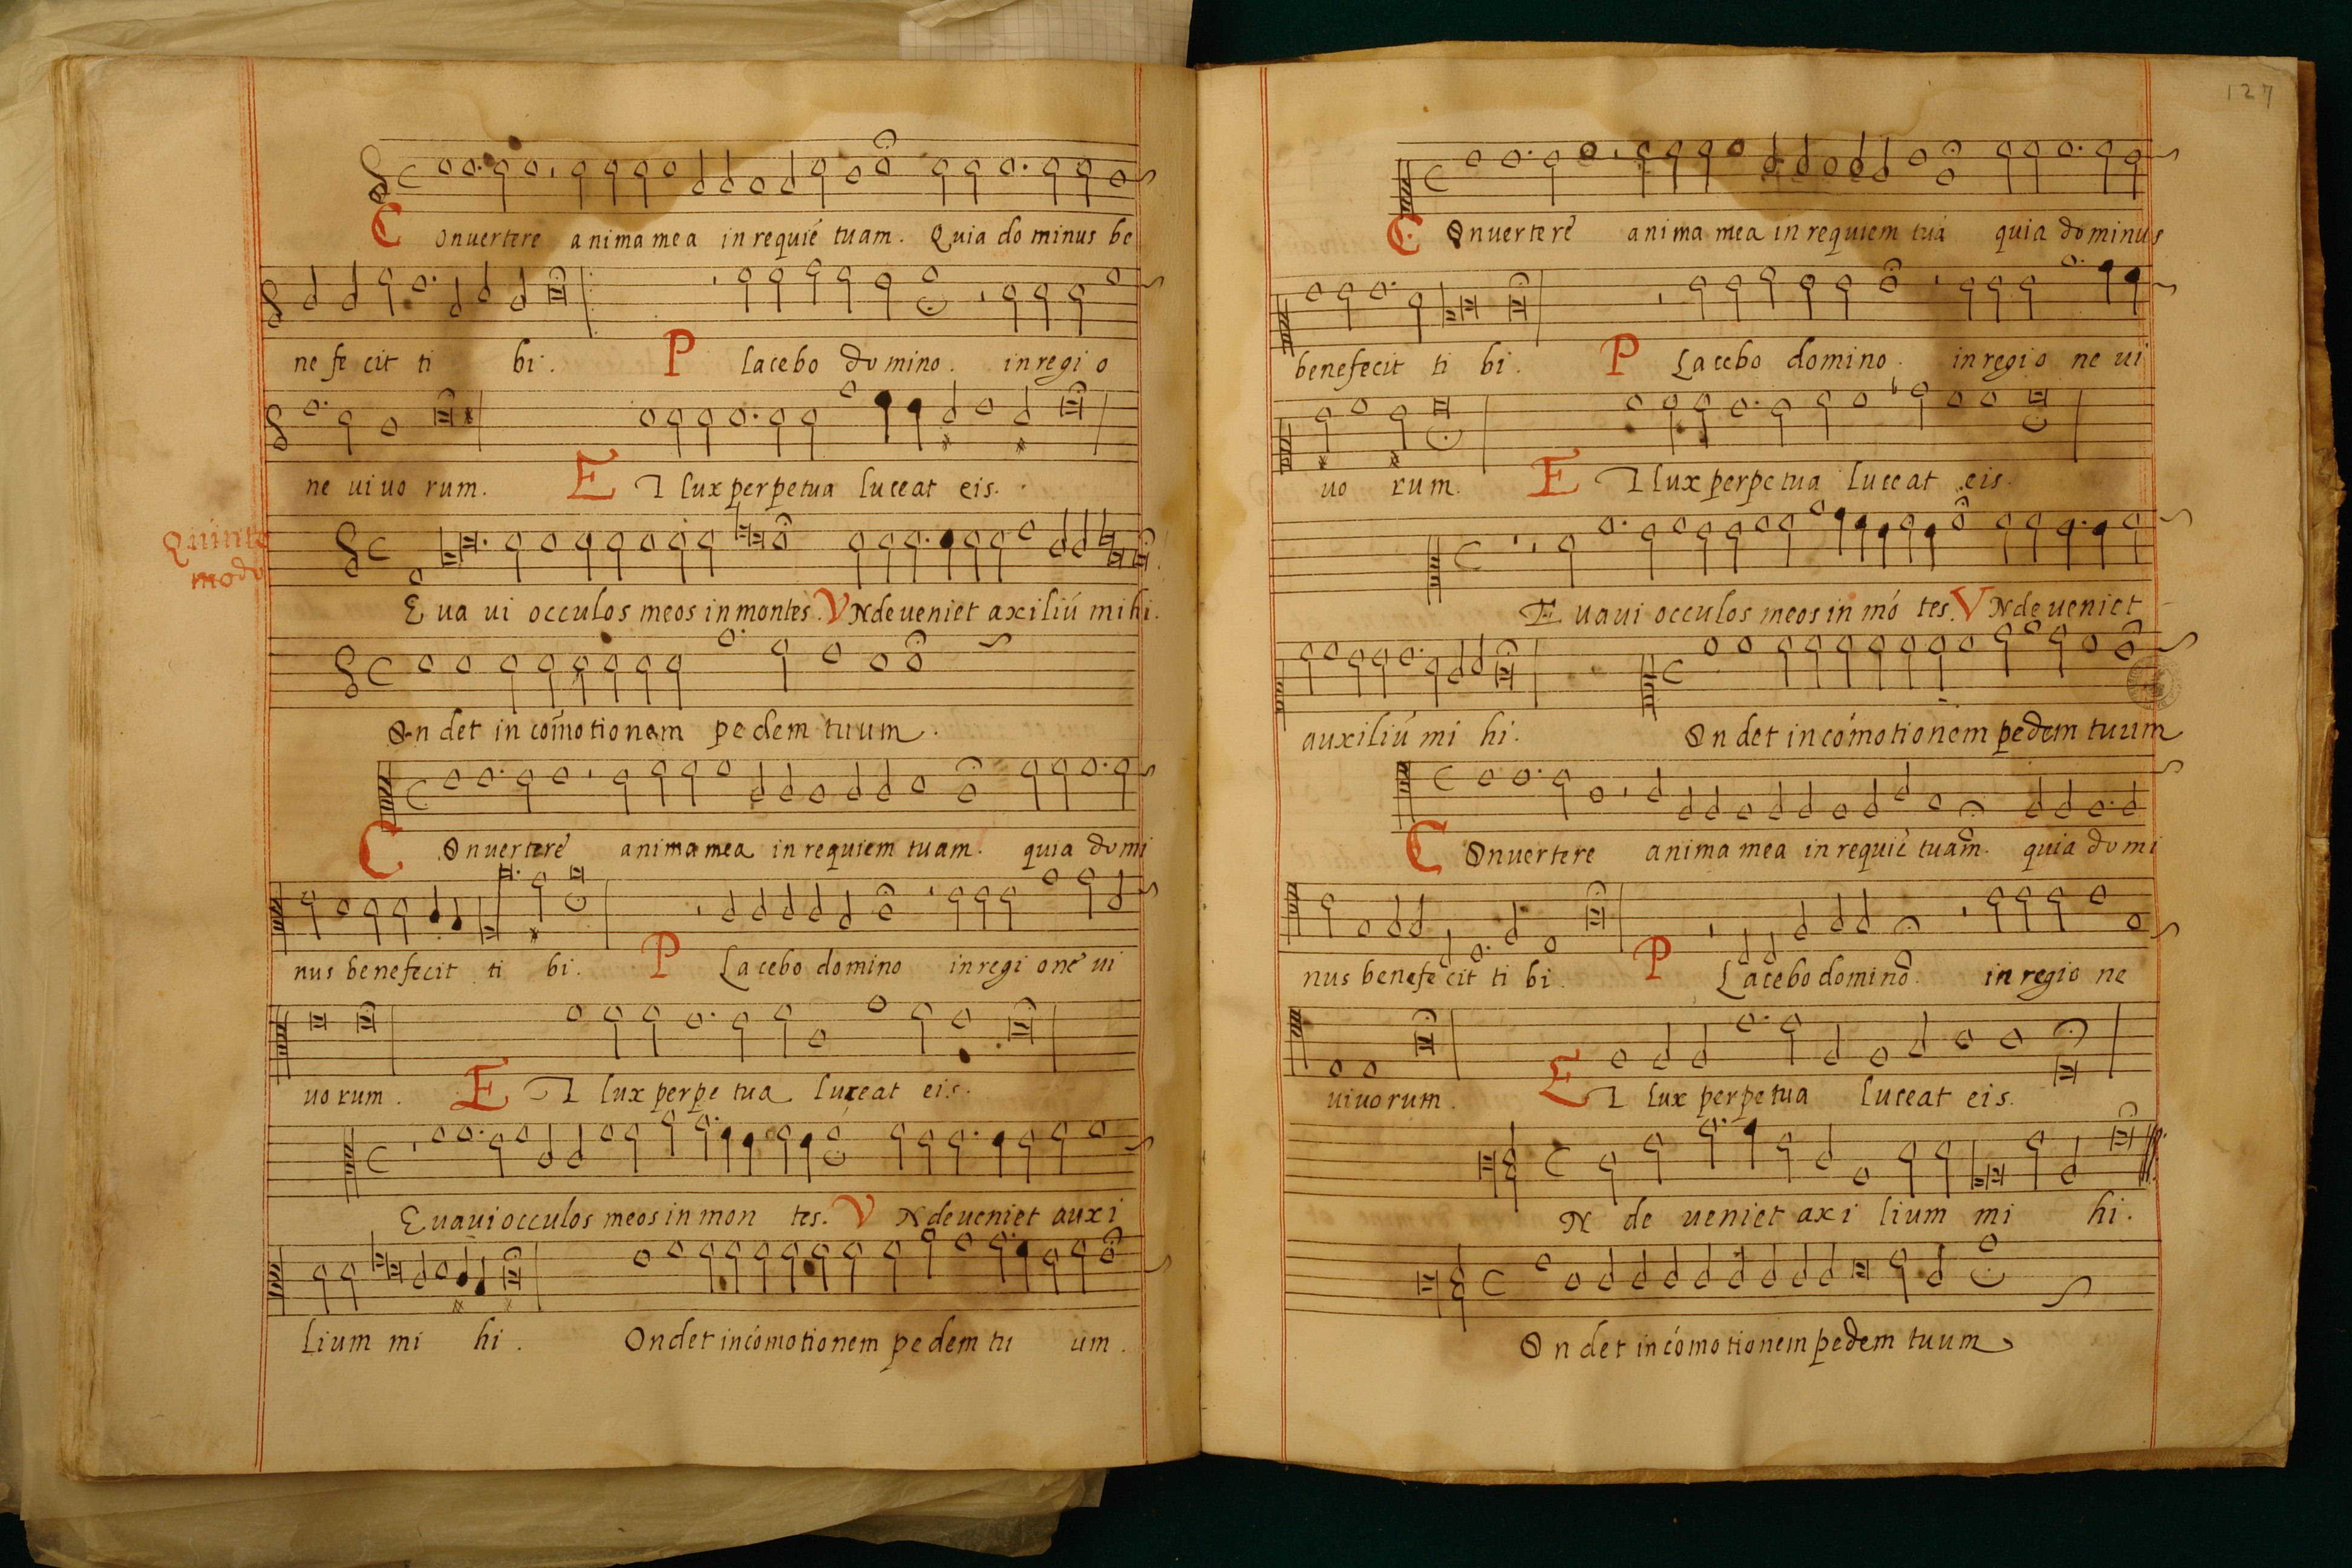 Conuertere anima mea in requié tuam. Quia do minus be
ne fe cit ti bi. Placebo domino. in regi o
ne ui uo rum. ET lux perpetua luceat eis.
Quinto
modo
Eua ui occulos meos in montes. VNde ueniet axiliú mihi.
On det in cómotionem pe dem tuum.
COnuertere anima mea in requiem tuam. quia domi
nus benefecit ti bi. PLacebo domino in regi one ui
uo rum. ET lux perpe tua luceat eis.
Euaui occulos meos in mon tes. VNde ueniet auxi
lium mi hi. Ondet incómotionem pe dem tu um.
127
COnuertere anima mea in requiem tuá quia dominus
benefecit ti bi. PLacebo domino. in regio ne ui
uo rum. ET lux perpetua luceat eis.
Euaui occulos meos in mó tes. VNde ueniet
auxiliú mi hi. On det incómotionem pedem tuum
COnuertere anima mea in requié tuam. quia domi
nus benefe cit ti bi. PLacebo domino. in regio ne
uiuorum. ET lux perpetua luceat eis.
N de ueniet axi lium mi hi.
On det incómotionem pedem tuum